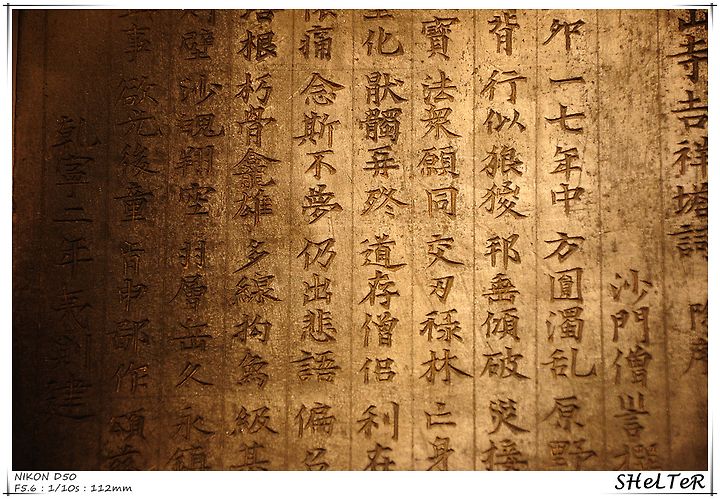 山寺吉祥塔詞 除序
沙門僧
卯一七年中方圓濁乱原野
背行似狼狻邦垂傾破災接
寶法衆願同交刃祿林亡身
化猒髑殁道存僧侶利在
痛念斯不夢仍出悲語偏名
根朽骨龕雄多線拘級其
壁沙魂翔空羽層岳久永鎮
事元後童部作頌
乾寧二年建
NIKON D50
F5.6 : 1/10s : 112mm
SHeLTeR